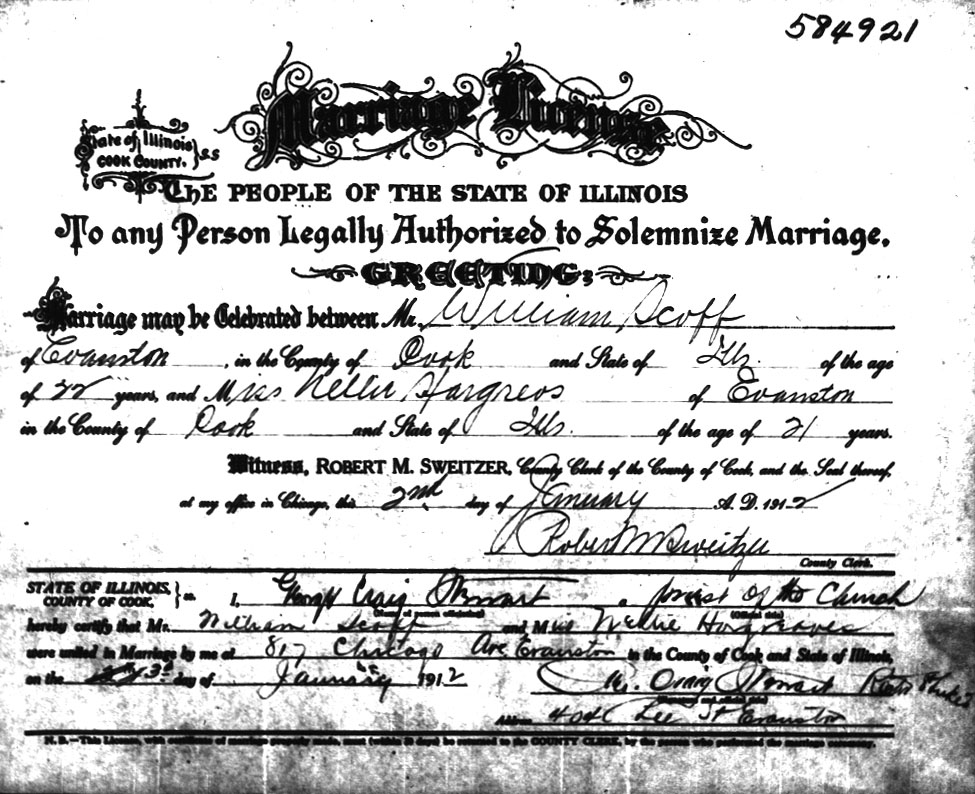 584921
Marriage License
State of Illinois
COOK COUNTY. } SS
THE PEOPLE OF THE STATE OF ILLINOIS
To any Person Legally Authorized to Solemnize Marriage.
GREETING:
Marriage may be Celebrated between Mr. William Scoff
of Evanston, in the County of Cook and State of Ills. of the age
of 22 years, and Miss Nellie Hargreos of Evanston
in the County of Cook and State of Ills. of the age of 21 years.
Witness, ROBERT M. SWEITZER, County Clerk of the County of Cook, and the Seal thereof,
at my office in Chicago, this 2nd day of January A. D. 1912
Robert M Sweitzer
County Clerk.
STATE OF ILLINOIS, COUNTY OF COOK, } ss. I, George Craig Stewart a priest of the Church
hereby certify that Mr. William Scoff and Miss Nellie Hargreaves
were united in Marriage by me at 817 Chicago Ave. Evanston in the County of Cook and State of Illinois,
on the 3d day of January 1912
G. Craig Stewart Rector St Lukes
Address 404 Lee St Evanston
N. B.—This License, with certificate of marriage properly made, must (within 30 days) be returned to the COUNTY CLERK, by the person who performed the marriage ceremony.